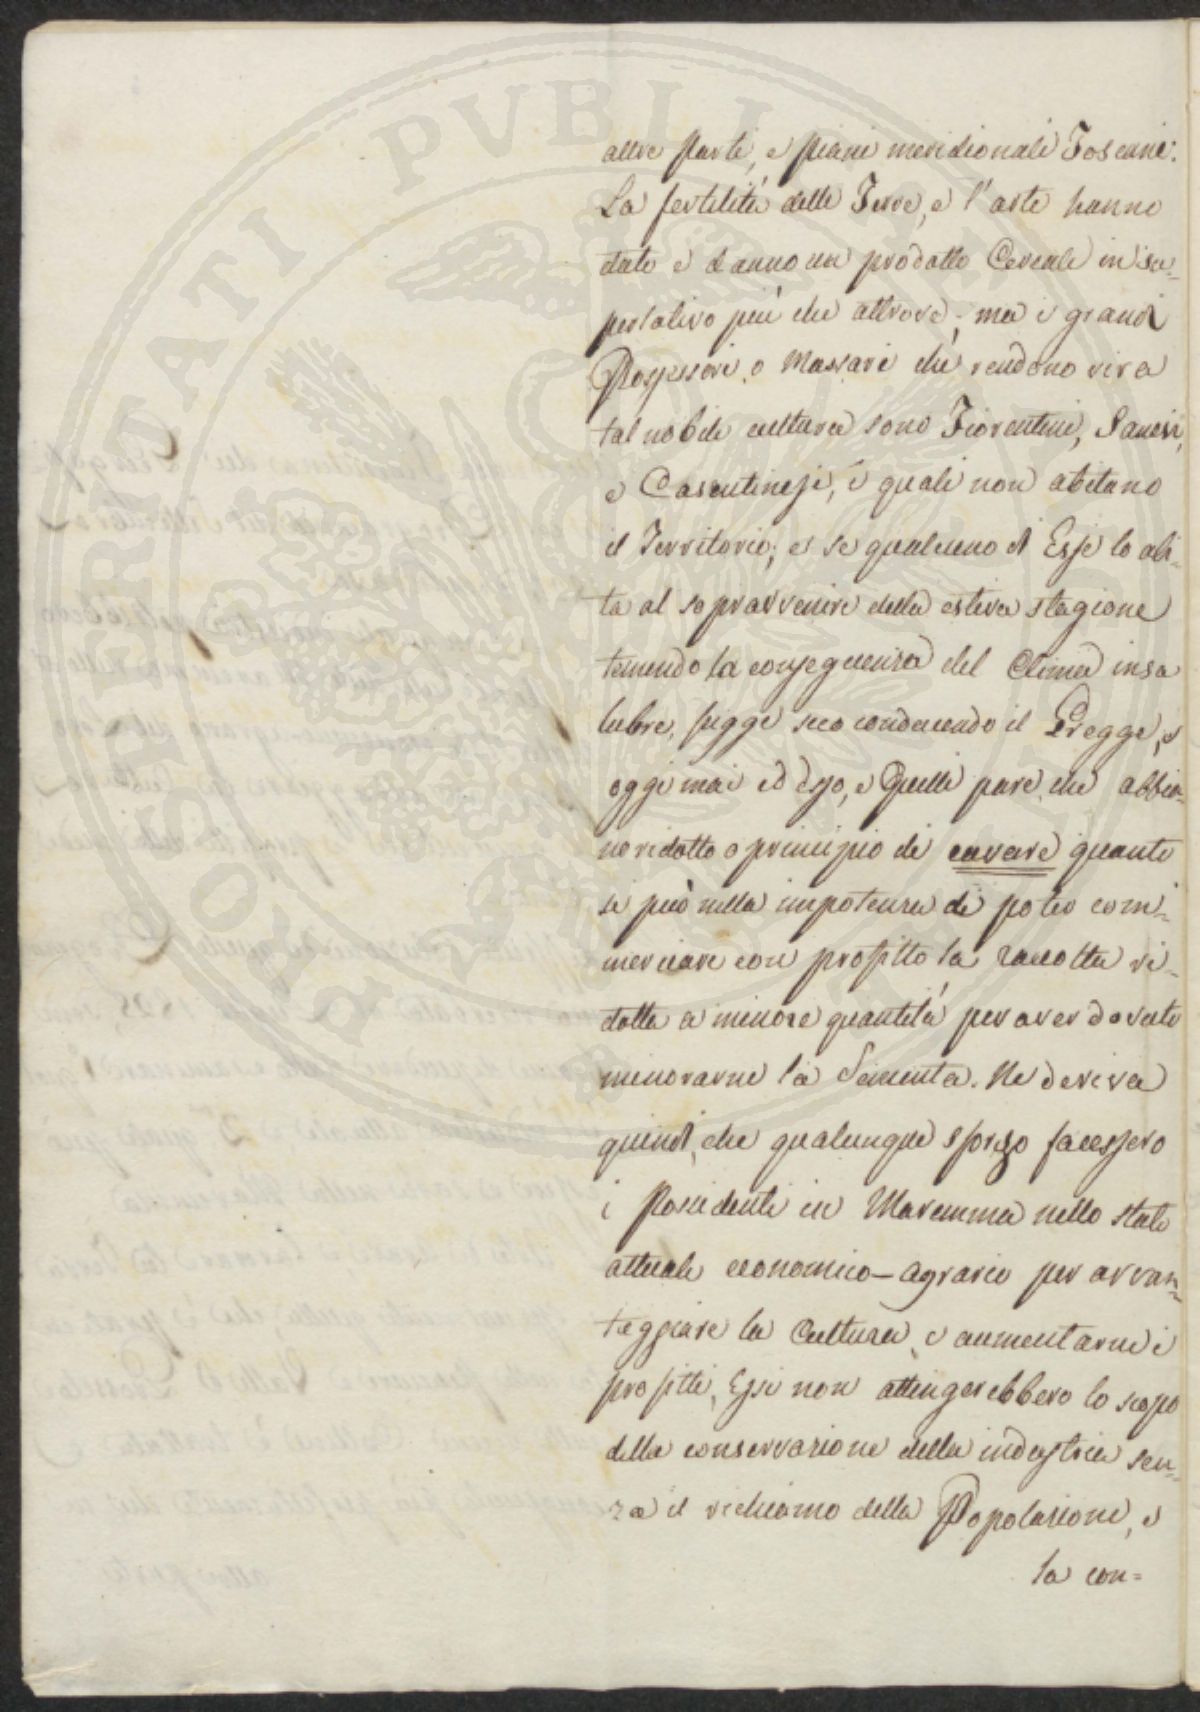 PROSPERITATI PVBLICAE
altre parti, e piani meridionali Toscani.
La fertilità delle Terre, e l'arte hanno
dato e danno un prodotto Cereale in su-
perlativo più che altrove; ma i grandi
Possessori, o Massari che rendono viva
tal nobile cultura sono Fiorentini, Sanesi,
e Casentinesi, i quali non abitano
il Territorio; e se qualcuno di Essi lo abi-
ta al sopravvenire della estiva stagione
temendo la conseguenza del Clima insa
lubre, fugge seco conducendo il Gregge, e
oggi mai ed esso, e Quelli pare, che abbia-
no ridotto a principio di cavare quanto
si può nella impotenza di poter com-
merciare con profitto la raccolta ri-
dotta a minore quantità per aver dovuto
minorarne la Sementa. Ne deriva
quindi, che qualunque sforzo facessero
i Possidenti in Maremma nello stato
attuale economico-agrario per avvan-
taggiare la Cultura, e aumentarne i
profitti, Essi non attingerebbero lo scopo
della conservazione della industria sen-
za il richiamo della Popolazione, e
la con=